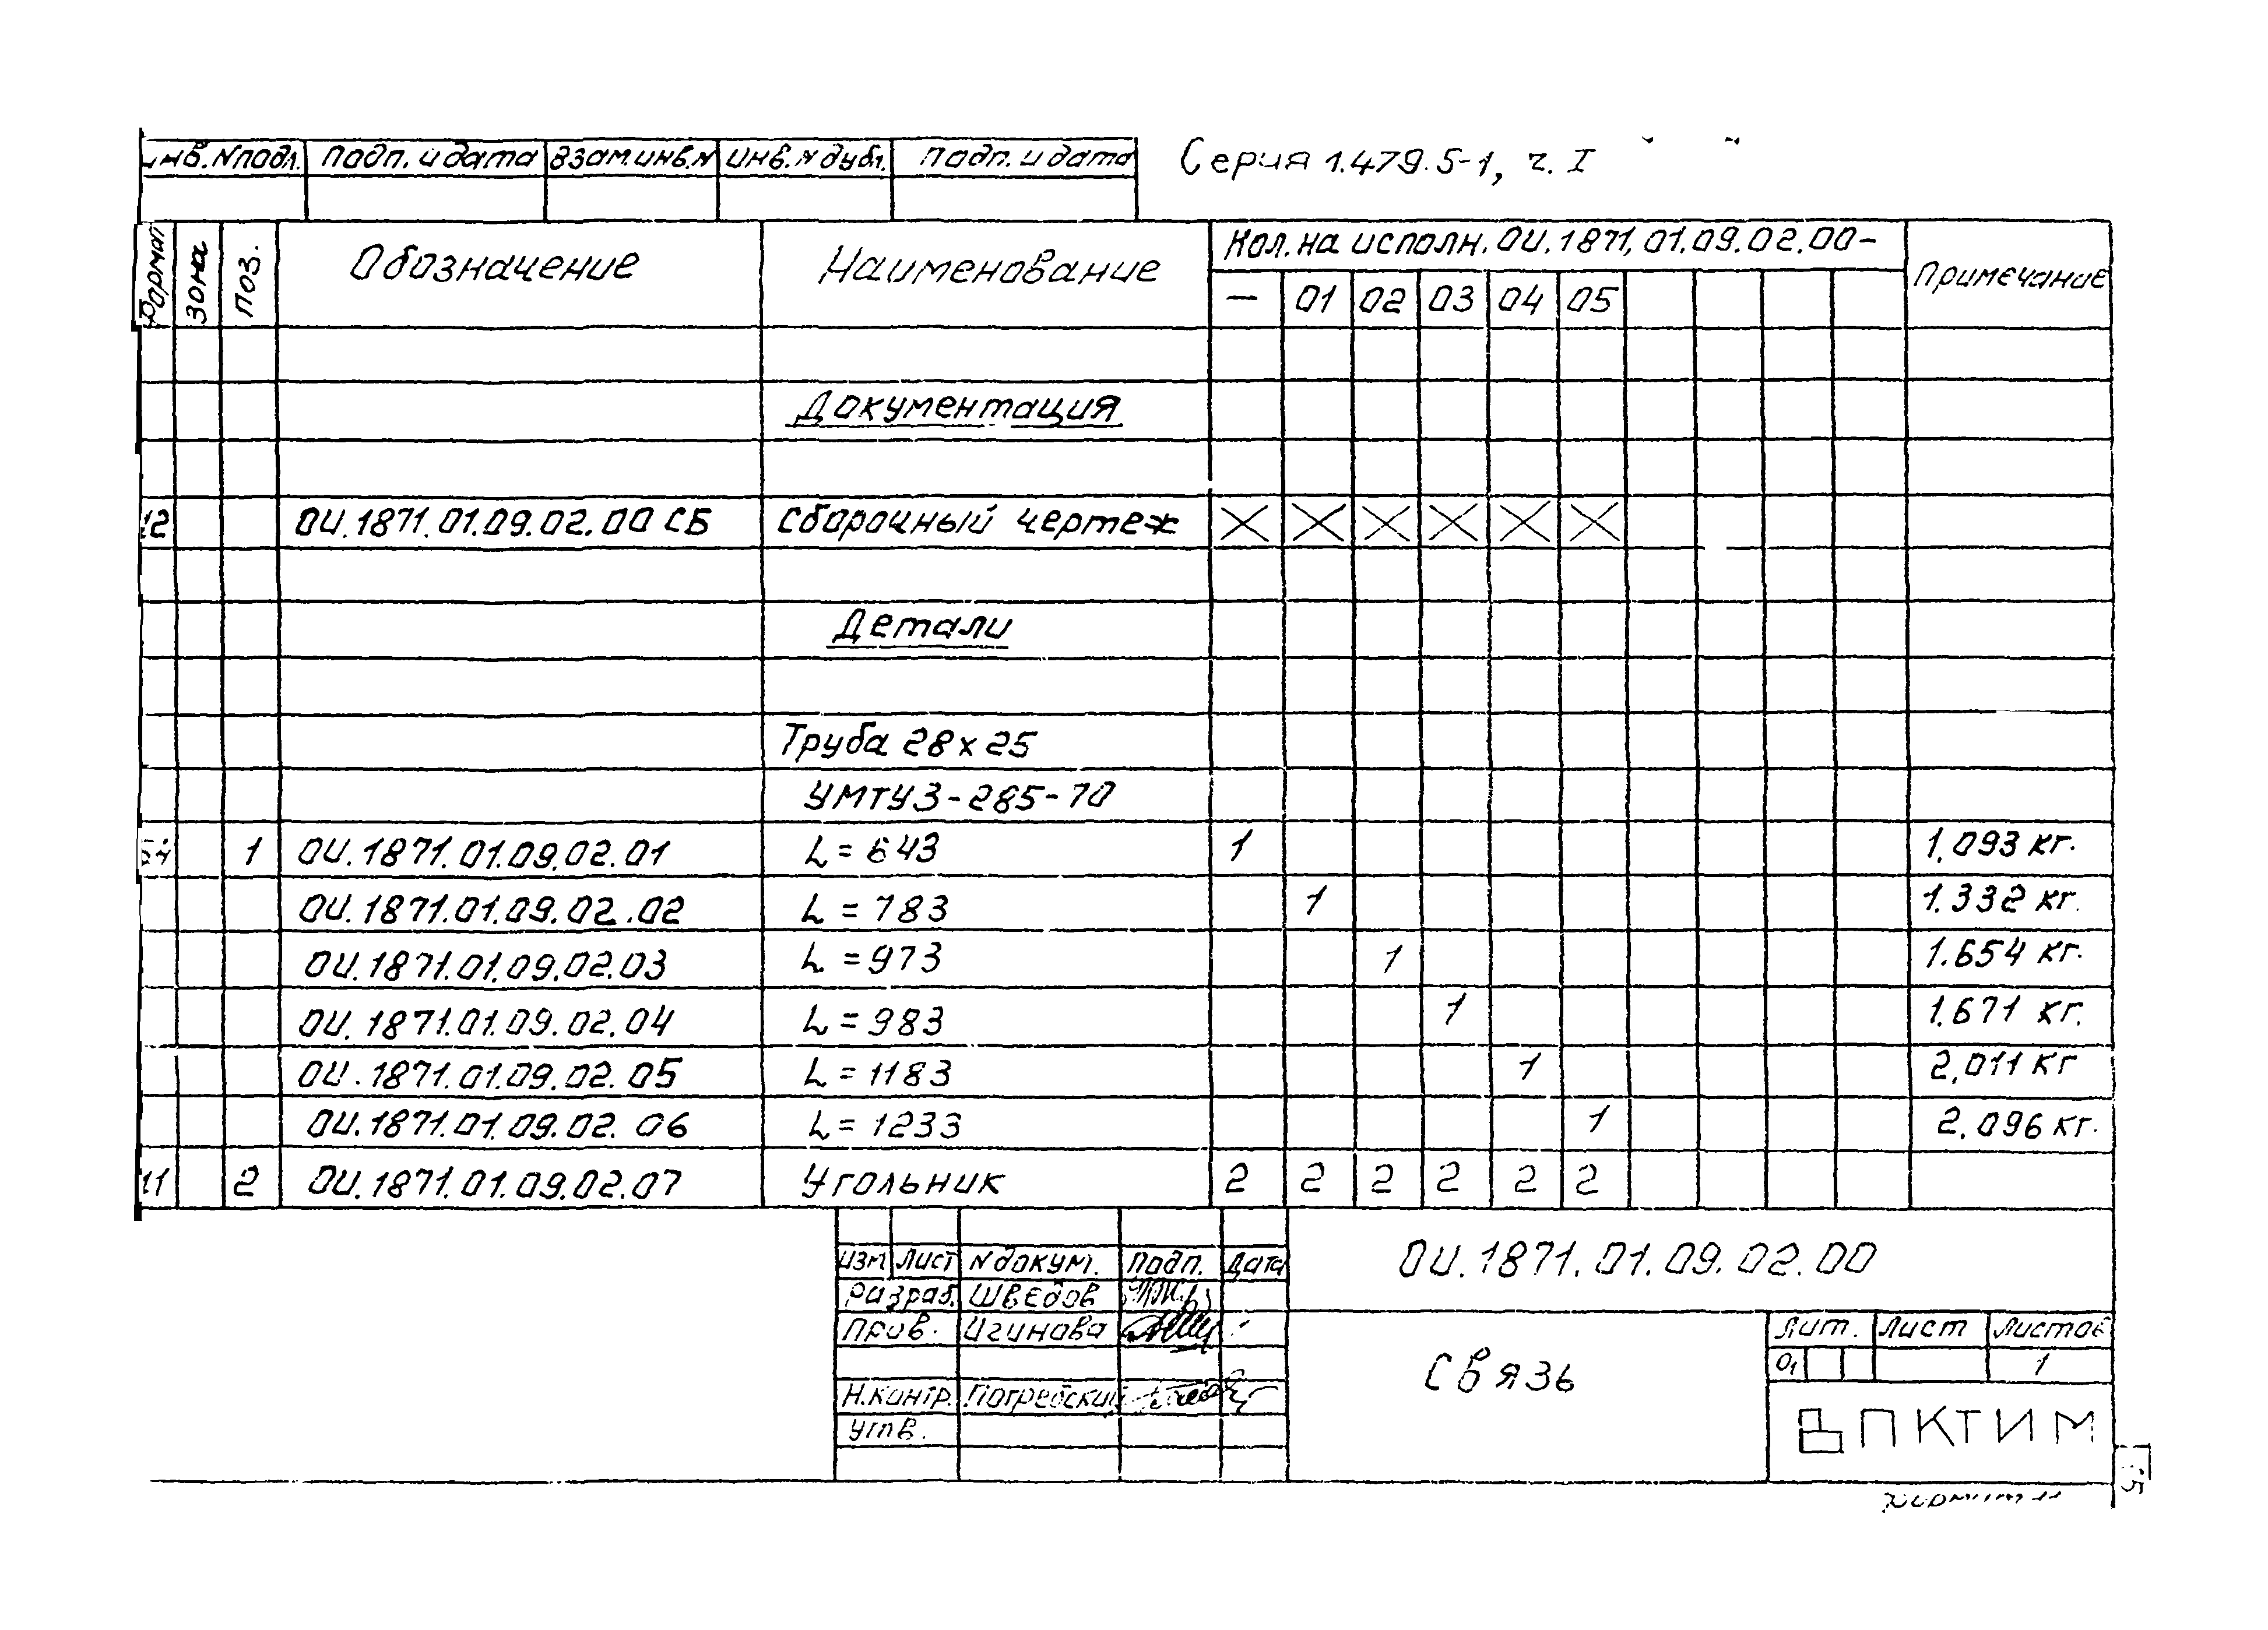 Инв.N подл. Подп. и дата Взам.инв.N Инв.N дубл. Подп. и дата Серия 1.479.5-1, ч. I
Формат Зона Поз. Обозначение Наименование Кол. на исполн. ОИ.1871.01.09.02.00- Примечание
— 01 02 03 04 05
Документация
12 ОИ.1871.01.09.02.00 СБ Сборочный чертеж X X X X X X
Детали
Труба 28х25
УМТУ3-285-70
БЧ 1 ОИ.1871.01.09.02.01 L = 643 1 1.093 кг.
ОИ.1871.01.09.02.02 L = 783 1 1.332 кг.
ОИ.1871.01.09.02.03 L = 973 1 1.654 кг.
ОИ.1871.01.09.02.04 L = 983 1 1.671 кг.
ОИ.1871.01.09.02.05 L = 1183 1 2.011 кг
ОИ.1871.01.09.02.06 L = 1233 1 2.096 кг.
11 2 ОИ.1871.01.09.02.07 Угольник 2 2 2 2 2 2
Изм Лист N докум. Подп. Дата ОИ.1871.01.09.02.00
Разраб. Шведов
Пров. Игинова
Связь
Лит. Лист Листов
01 1
Н.контр. Погребский
Утв.
ВПКТИМ